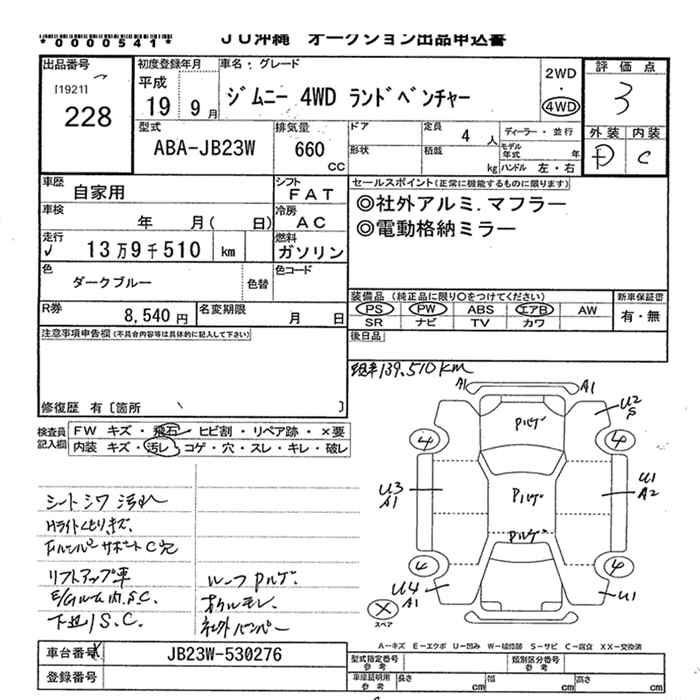 *0000541*
JU沖縄 オークション出品申込書
出品番号
[1921]
228
初度登録年月
平成
19 9 月
車名・グレード
ジムニー 4WD ランドベンチャー
2WD
・
4WD
評価点
3
外装 内装
D C
型式
ABA-JB23W
排気量
660
CC
ドア
形状
定員 4 人
積載 kg
ディーラー・並行
モデル年式 年
ハンドル 左・右
車歴
自家用
シフト
FAT
車検
年 月( 日)
冷房
AC
走行
√ 13万9千510 km
燃料
ガソリン
色
ダークブルー
色替
色コード
R券
8,540 円
名変期限
月 日
セールスポイント(正常に機能するものに限ります)
◎社外アルミ.マフラー
◎電動格納ミラー
装備品 (純正品に限り〇をつけてください)
PS PW ABS エアB AW
SR ナビ TV カワ
新車保証書
有・無
後日品
注意事項申告欄(不具合内容等は具体的に記入して下さい)
修復歴 有〔箇所 〕
検査員記入欄
FW キズ・飛石・ヒビ割・リペア跡・×要
内装 キズ・汚レ・コゲ・穴・スレ・キレ・破レ
139,510km
A1 A1
U2
S
Pルゲ
4 4
U3
A1
Pルゲ
U1
A2
Pルゲ
4 4
U4
A1
U1
×
スペア
シートシワ汚れ
Hライトくもりキズ.
リフトアップ車
E/Gルーム内.S.C.
下廻りS.C.
ルーフPルゲ.
社外バンパー
A－キズ E－エクボ U－凹み W－補修跡 S－サビ C－腐食 XX－交換済
車台番号
JB23W-530276
登録番号
型式指定番号
参考
類別区分番号
参考
車庫証明用
参考
長さ cm
幅 cm
高さ cm